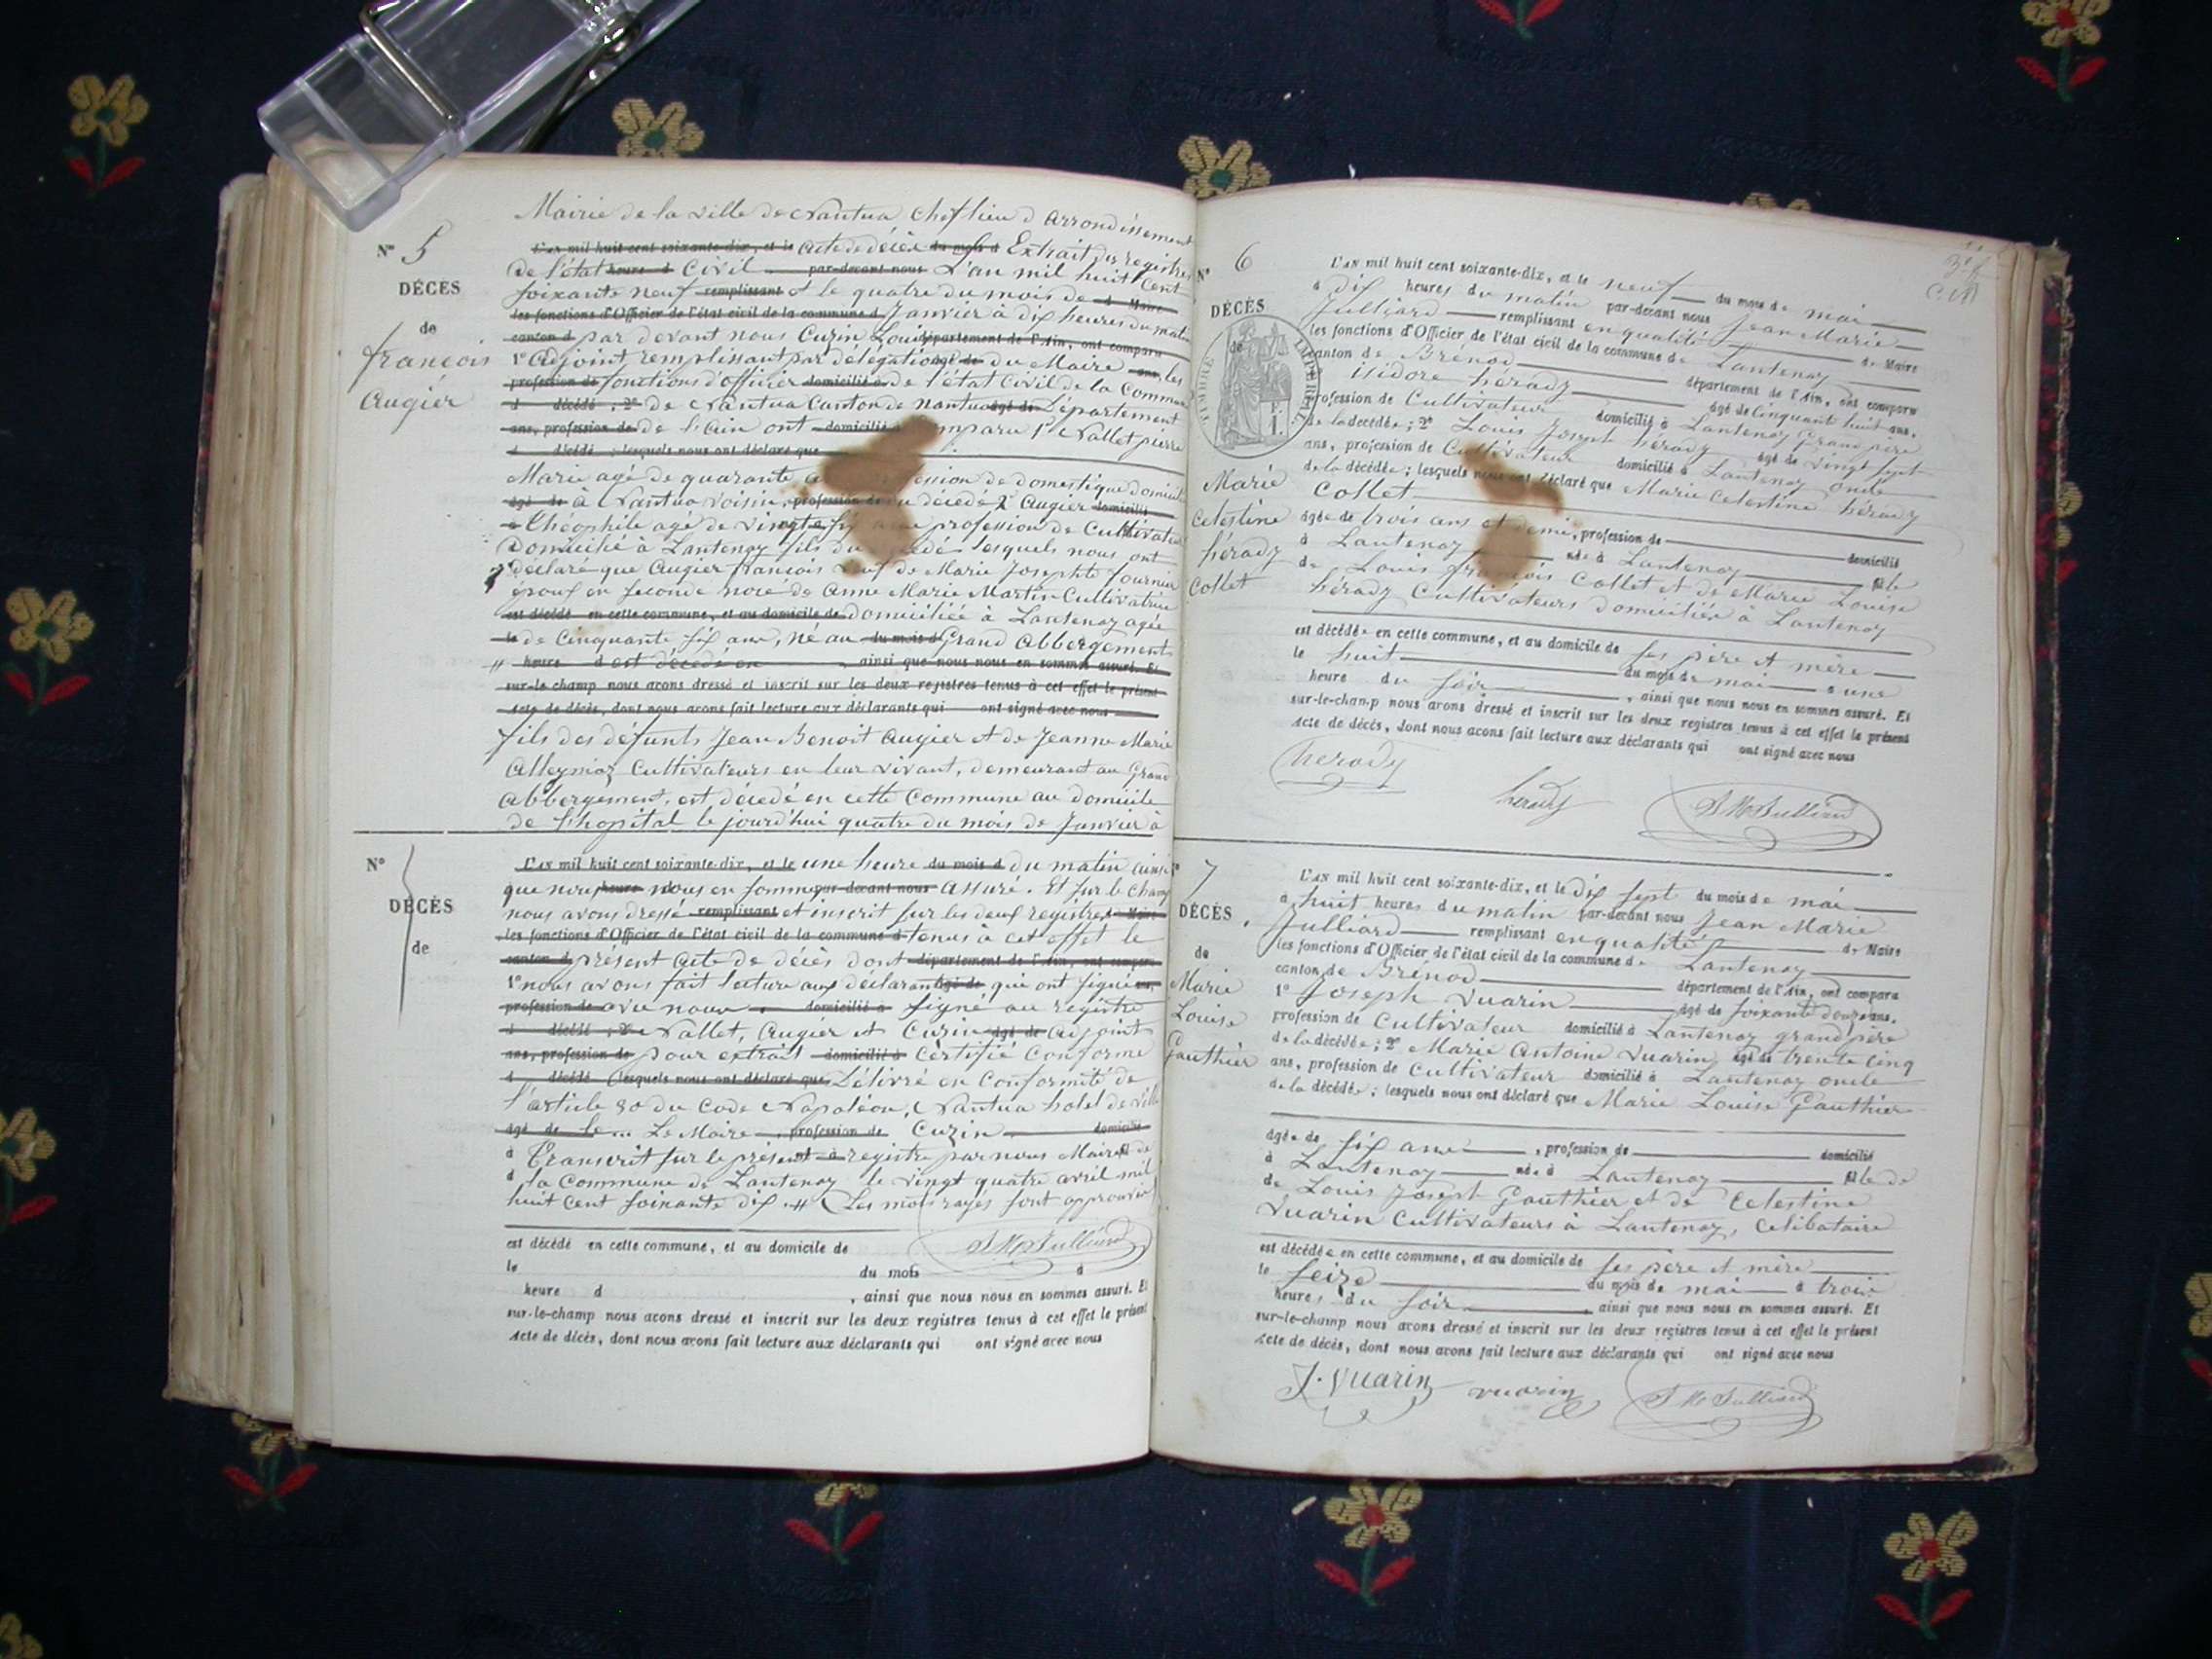 Mairie de la ville de Nantua Chef lieu d'arrondissement
N° 5
DÉCÈS
de
françois
Augier
L'an mil huit cent soixante-dix, et le acte de décès du mois d Extrait des registres
de l'état heure d civil par-devant nous L'an mil huit cent
soixante neuf remplissant et le quatre du mois de d Maire
les fonctions d'Officier de l'état civil de la commune d Janvier à dix heures du matin
canton d par devant nous Cuzin Louis département de l'Ain, ont comparu
1° adjoint remplissant par délégation âgé de du Maire ans, les
profession de fonctions d'officier domicilié à de l'état civil de la Commune
d décédé ; 2° de Nantua Canton de Nantua âgé de Département
ans, profession de de l'ain ont domicilié comparu 1° Nallet pierre
d décédé ; lesquels nous ont déclaré que
Marie agé de quarante profession de domestique domicilié
âgé de à Nantua voisin profession de du décédé 2° Augier domicilié
à théophile agé de vingt six ans profession de Cultivateur
Domicilié à Lantenay fils du décédé lesquels nous ont
déclaré que Augier francois veuf de Marie Josephte fournier
époux en seconde nocé de Anne Marie Martin Cultivatrice
est décédé en cette commune, et au domicile de domiciliée à Lantenay agée
le de Cinquante six ans, né au du mois d Grand Abbergement
heure d est décédé en , ainsi que nous nous en sommes assuré. Et
sur-le-champ nous avons dressé et inscrit sur les deux registres tenus à cet effet le présent
acte de décès, dont nous avons fait lecture aux déclarants qui ont signé avec nous
fils des défunts Jean Benoit Augier et de Jeanne Marie
Alleynioz Cultivateurs en leur vivant, demeurant au Grand
Abbergement, est décédé en cette Commune au domicile
de l'hopital le jourd'hui quatre du mois de Janvier à
N°
DÉCÈS
de
L'an mil huit cent soixante-dix, et le une heure du mois d du matin ainsi
que nous heure nous en sommes par-devant nous assuré. Et sur le champ
nous avons dressé remplissant et inscrit sur les deux registres d Maire
les fonctions d'Officier de l'état civil de la commune d tenus à cet effet le
canton d présent acte de décès dont département de l'Ain, ont comparu
1° nous avons fait lecture aux déclarants âgé de qui ont signé ans,
profession de avec nous domicilié à signé au registre
d décédé ; 2° Nallet, Augier et Cuzin âgé de adjoint
ans, profession de pour extrait domicilié à certifié conforme
d décédé ; lesquels nous ont déclaré que Délivré en conformité de
l'article 80 du Code Napoléon, Nantua hotel de ville
âgé de le ... Le Maire profession de Cuzin domicilié
à Transcrit sur le présent né à registre par nous Maire fil de
d la Commune de Lantenay le vingt quatre avril mil
huit cent soixante dix Les mots rayés sont approuvés
J M Julliard
est décédé en cette commune, et au domicile de
le du mois d
heure d , ainsi que nous nous en sommes assuré. Et
sur-le-champ nous avons dressé et inscrit sur les deux registres tenus à cet effet le présent
acte de décès, dont nous avons fait lecture aux déclarants qui ont signé avec nous
N° 6
DÉCÈS
de
TIMBRE IMPÉRIAL
Marie
Celestine
hérady
Collet
L'an mil huit cent soixante-dix, et le neuf du mois de mai
à dix heures du matin par-devant nous Jean Marie
Julliard remplissant en qualité de Maire
les fonctions d'Officier de l'état civil de la commune de Lantenay
canton de Brénod département de l'Ain, ont comparu
Isidore hérady âgé de Cinquante huit ans,
profession de Cultivateur domicilié à Lantenay Grand père
de la décédée ; 2° Louis Joseph hérady âgé de vingt sept
ans, profession de Cultivateur domicilié à Lantenay oncle
de la décédée ; lesquels nous ont déclaré que Marie Celestine hérady
Collet
âgée de trois ans et demi, profession de domicilié
à Lantenay née à Lantenay fille
de Louis françois Collet et de Marie Louise
hérady Cultivateurs domiciliés à Lantenay
est décédée en cette commune, et au domicile de ses père et mère
le huit du mois de mai à une
heure du soir , ainsi que nous nous en sommes assuré. Et
sur-le-champ nous avons dressé et inscrit sur les deux registres tenus à cet effet le présent
acte de décès, dont nous avons fait lecture aux déclarants qui ont signé avec nous
herody
herady
J M Julliard
7
DÉCÈS
de
Marie
Louise
Gauthier
L'an mil huit cent soixante-dix, et le dix sept du mois de mai
à huit heures du matin par-devant nous Jean Marie
Julliard remplissant en qualité de Maire
les fonctions d'Officier de l'état civil de la commune de Lantenay
canton de Brénod département de l'Ain, ont comparu
1° Joseph Vuarin âgé de soixante douze ans,
profession de Cultivateur domicilié à Lantenay grand père
de la décédée ; 2° Marie Antoine Vuarin âgé de trente cinq
ans, profession de Cultivateur domicilié à Lantenay oncle
de la décédée ; lesquels nous ont déclaré que Marie Louise Gauthier
âgée de six ans , profession de domicilié
à Lantenay née à Lantenay fille de
de Louis Joseph Gauthier et de Celestine
Vuarin Cultivateurs à Lantenay, Celibataire
est décédée en cette commune, et au domicile de ses père et mère
le seize du mois de mai à trois
heures du soir , ainsi que nous nous en sommes assuré. Et
sur-le-champ nous avons dressé et inscrit sur les deux registres tenus à cet effet le présent
acte de décès, dont nous avons fait lecture aux déclarants qui ont signé avec nous
J. Vuarin
vuarin
J M Julliard